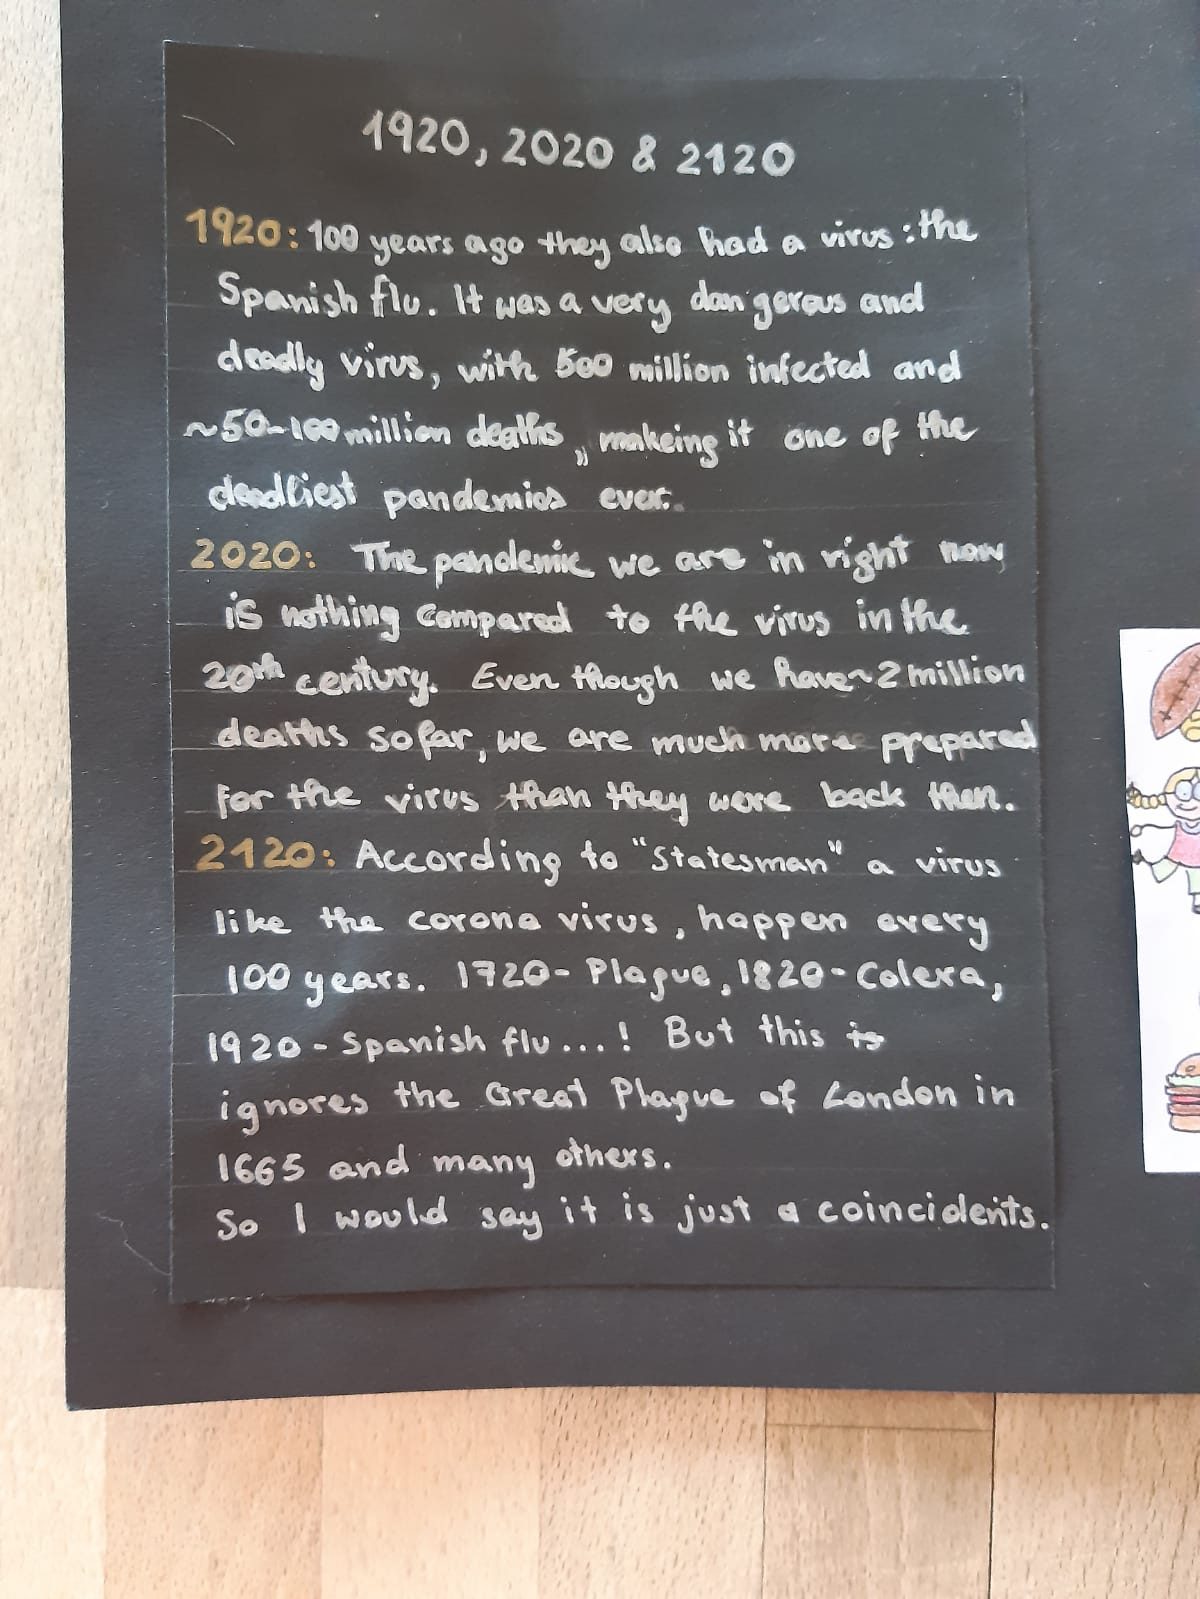 1920, 2020 & 2120
1920: 100 years ago they also had a virus: the
Spanish flu. It was a very dangerous and
deadly virus, with 500 million infected and
~50-100 million deaths,, makeing it one of the
deadliest pandemics ever.
2020: The pandemic we are in right now
is nothing compared to the virus in the
20th century. Even though we have ~2 million
deaths so far, we are much more prepared
for the virus than they were back then.
2120: According to "Statesman" a virus
like the corona virus, happen every
100 years. 1720- Plague, 1820- Colera,
1920- Spanish flu...! But this is
ignores the Great Plague of London in
1665 and many others.
So I would say it is just a coincidents.